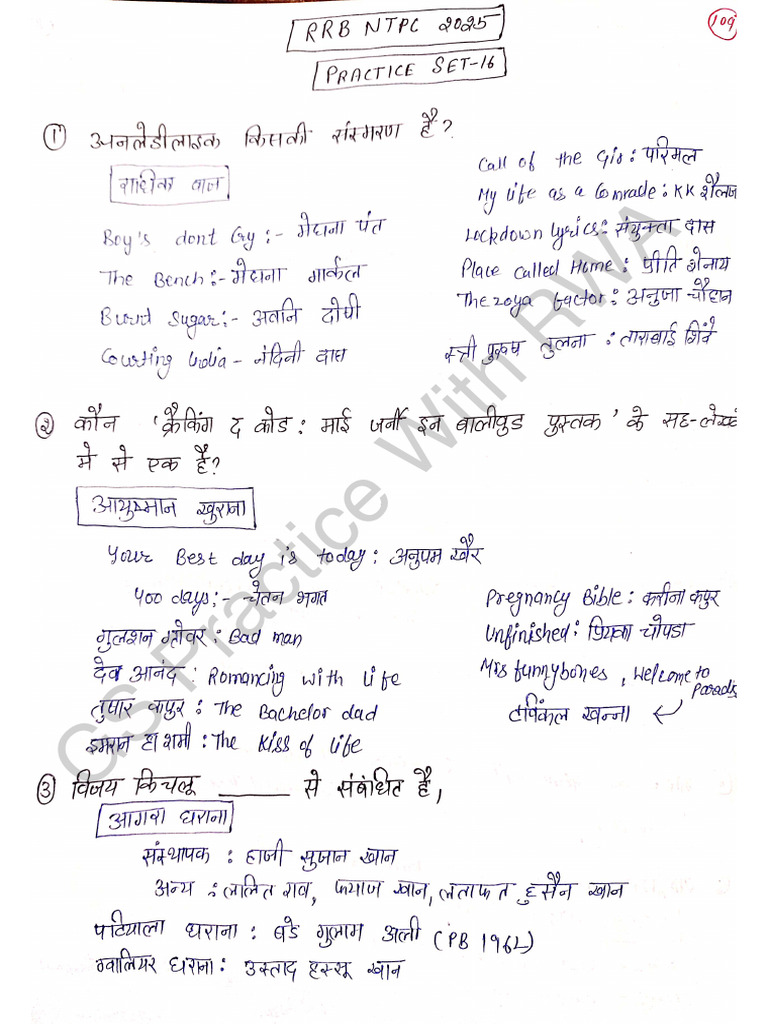 RRB NTPC 2025
109
PRACTICE SET-16
① अनलेडीलाइक किसकी संस्मरण है?
राधिका वाज
Call of the Gir: परिमल
My life as a Comrade: KK शैलज
Boy's dont Cry :- मेघना पंत
Lockdown Lyrics: संयुक्ता दास
The Bench:- मेघना मार्कल
Place Called Home: प्रीति शेनाय
The zoya factor: अनुजा चौहान
Burnt Sugar:- अवनि दोषी
स्त्री पुरुष तुलना: ताराबाई शिंदे
Courting India - नंदिनी दास
② कौन 'क्रैकिंग द कोड: माई जर्नी इन बालीवुड पुस्तक' के सह-लेखं
मे से एक है?
आयुष्मान खुराना
Your Best day is today: अनुपम खैर
400 days:- चेतन भगत
Pregnancy Bible: करीना कपुर
गुलशन ग्रोवर: Bad man
Unfinished: प्रियंका चोपडा
देव आनद: Romancing with life
Mrs funnybones, Welcome to Paradis
तुषार कपुर: The Bachelor dad
टविंकल खन्ना
इमरान हाशमी: The Kiss of life
③ विजय किचलू ______ से संबंधित है,
आगरा घराना
संस्थापक: हाजी सुजान खान
अन्य: ललित राव, फयाज खान, लताफत हुसैन खान
पटियाला घराना: बडे गुलाम अली (PB 1962)
ग्वालियर घराना: उस्ताद हस्सू खान
GS Practice With RWA